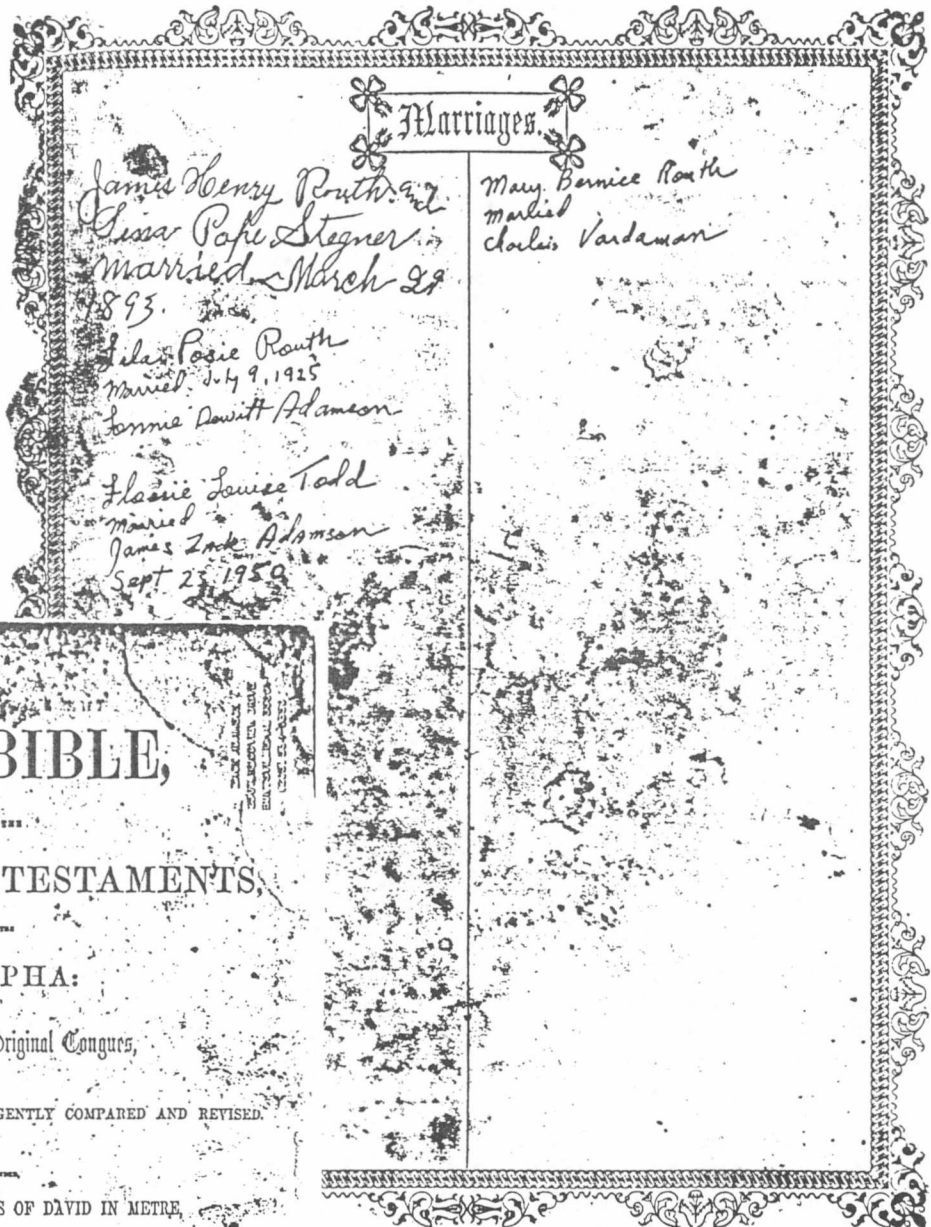 Marriages.
James Henry Routh and
Lissa Pope Stegner
married March 29
1893.
Lila Posie Routh
Married July 9, 1925
Lonnie Dewitt Adamson
Flossie Louise Todd
Married
James Zack Adamson
Sept 23 1950
Mary Bernice Routh
Married
Charles Vardaman
BIBLE,
THE
TESTAMENTS,
THE
PHA:
Original Tongues,
GENTLY COMPARED AND REVISED.
S OF DAVID IN METRE,